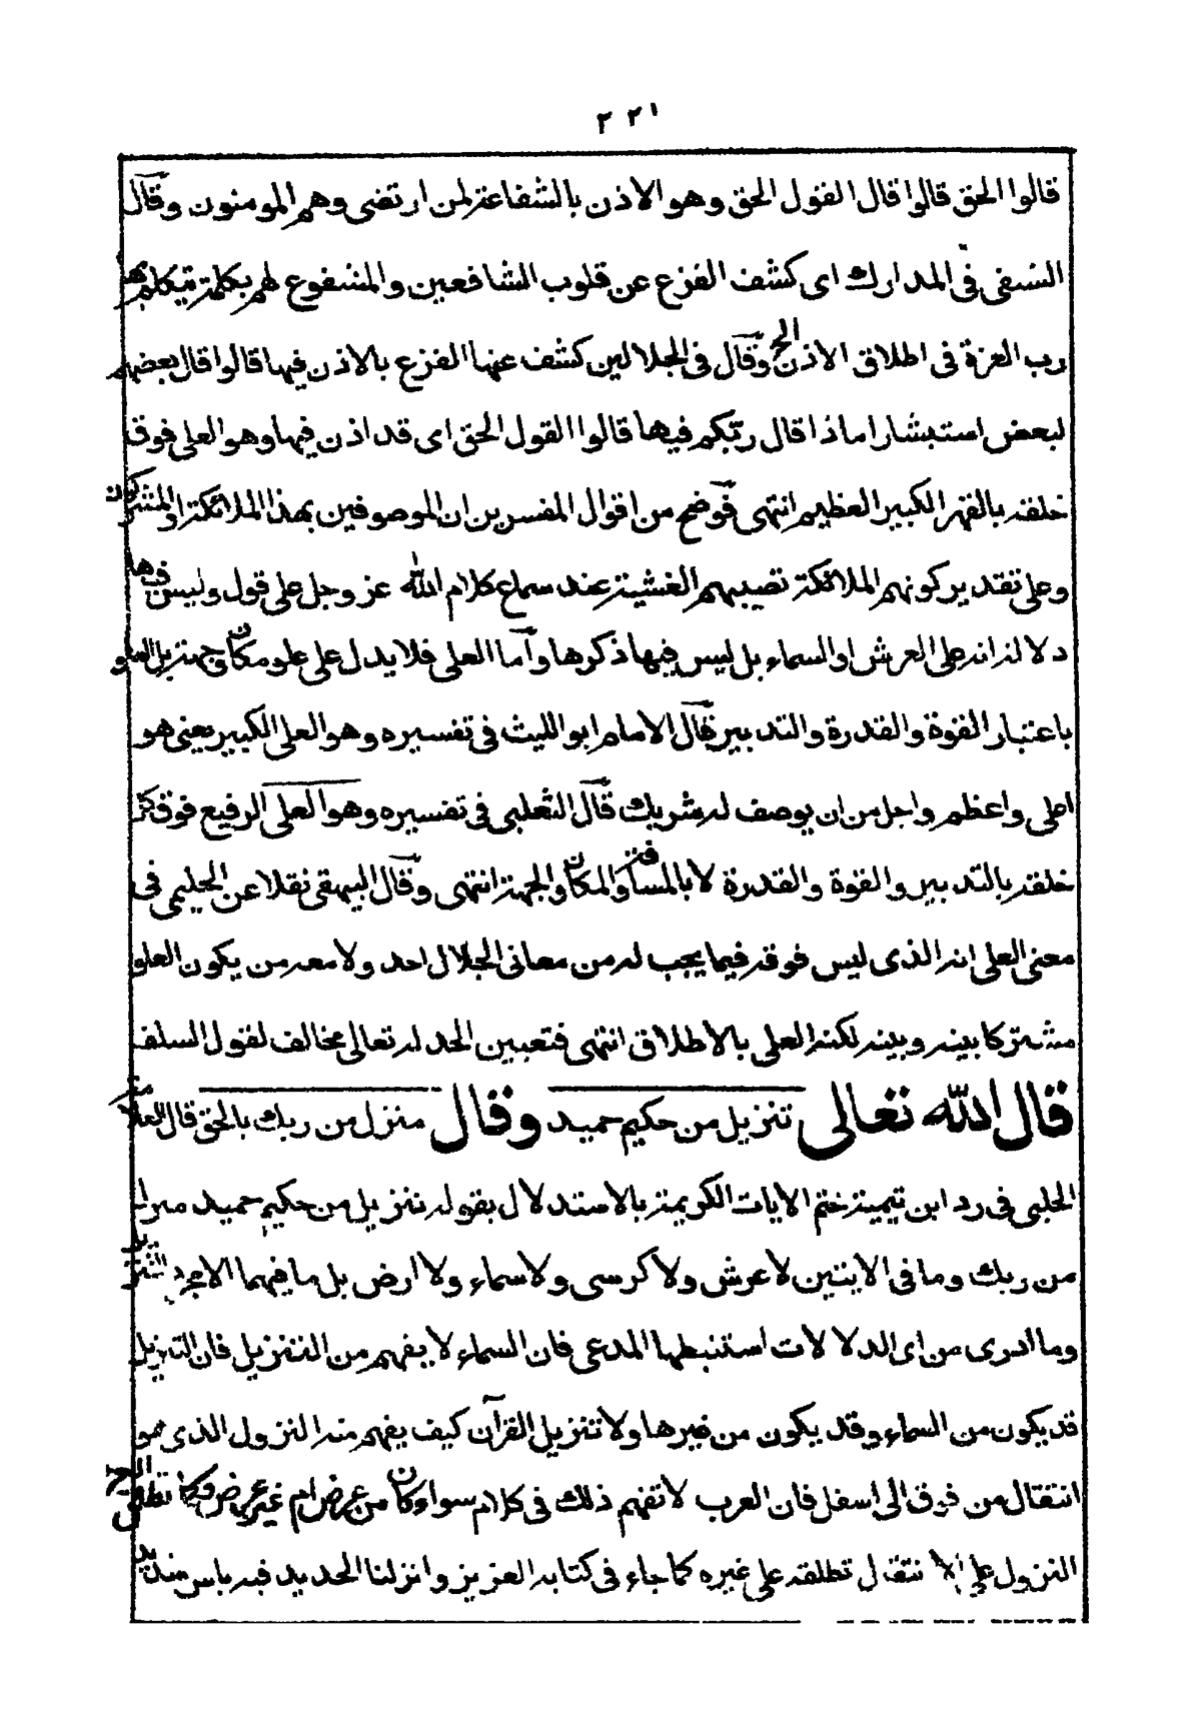 ٢٢١
قالوا الحق قالوا قال القول الحق وهو الاذن بالشفاعة لمن ارتضى وهم المومنون وقال
النسفى فى المدارك اى كشف الفزع عن قلوب الشافعين والمشفوع لهم بكلمة يتكلم بها
رب العزة فى اطلاق الاذن الخ وقال فى الجلالين كشف عنها الفزع بالاذن فيها قالوا قال بعضهم
لبعض استبشارا ماذا قال ربكم فيها قالوا القول الحق اى قد اذن فيها وهو العلى فوق
خلقه بالقهر الكبير العظيم انتهى فوضح من اقوال المفسرين ان الموصوفين بهذا الملائكة او المشركون
وعلى تقدير كونهم الملائكة تصيبهم الغشية عند سماع كلام الله عز وجل على قول وليس فيها
دلالة انه على العرش او السماء بل ليس فيها ذكرها وآما العلى فلا يدل على علو مكان وجهة بل العلو
باعتبار القوة والقدرة والتدبير قال الامام ابو الليث فى تفسيره وهو العلى الكبير يعنى هو
اعلى واعظم واجل من ان يوصف له شريك قال الثعلبى فى تفسيره وهو العلى الرفيع فوق كل
خلقه بالتدبير والقوة والقدرة لا بالمسافة والمكان والجهة انتهى وقال البيهقى نقلا عن الحليمى فى
معنى العلى انه الذى ليس فوقه فيما يجب له من معانى الجلال احد ولا معه من يكون العلو
مشتركا بينه وبينه لكنه العلى بالاطلاق انتهى فتعيين الحد له تعالى مخالف لقول السلف
قال الله تعالى تنزيل من حكيم حميد وقال منزل من ربك بالحق قال العلامة
الحلبى فى رد ابن تيمية ختم الايات الكريمة بالاستدلال بقوله تنزيل من حكيم حميد منزل
من ربك وما فى الايتين لا عرش ولا كرسى ولا سماء ولا ارض بل ما فيهما الا مجرد التنزيل
وما ادرى من اى الدلالات استنبطها المدعى فان السماء لا يفهم من التنزيل فان التنزيل
قد يكون من السماء وقد يكون من غيرها ولا تنزيل القرآن كيف يفهم منه النزول الذى هو
انتقال من فوق الى اسفل فان العرب لا تفهم ذلك فى كلام سواء كان من عرض ام غير عرض وكما تطلق العرب
النزول على الانتقال تطلقه على غيره كما جاء فى كتابه العزيز وانزلنا الحديد فيه باس شديد